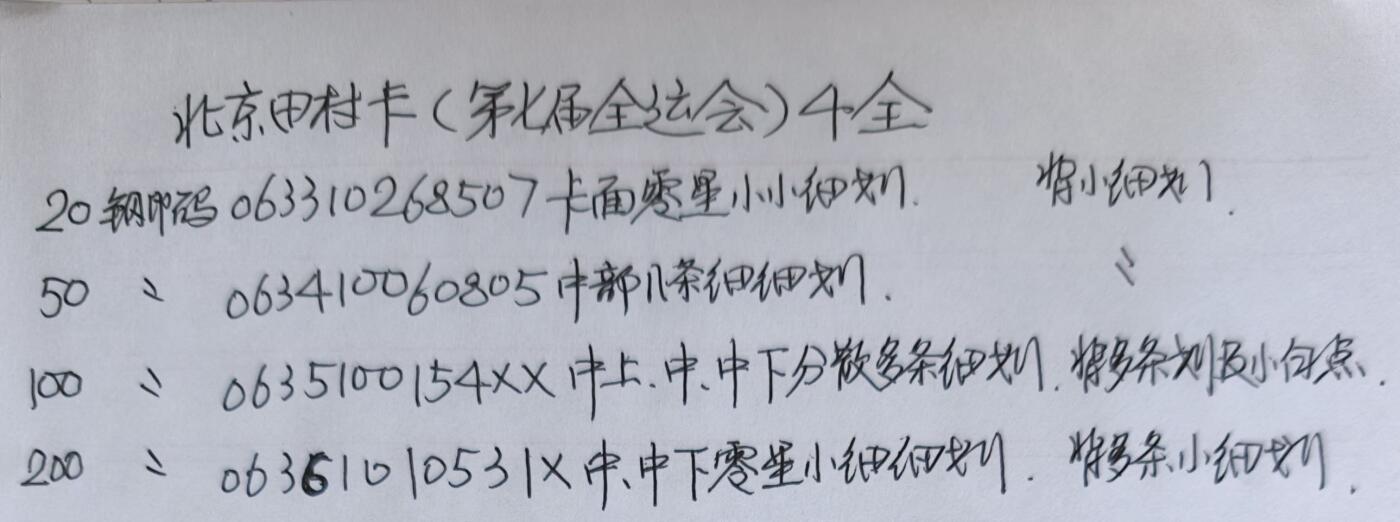 北京田村卡(第七届全运会)4全
20钢印码063310268507卡面零星小小细划. 背小细划.
50 〃 063410060805中部几条细细划. 〃
100 〃 0635100154XX中上.中.中下分散多条细划. 背多条划及小白点.
200 〃 06361010531X中.中下零星小细细划. 背多条小细划.